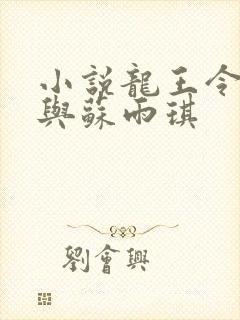 小說龍王令
與蘇雨琪
劉會興